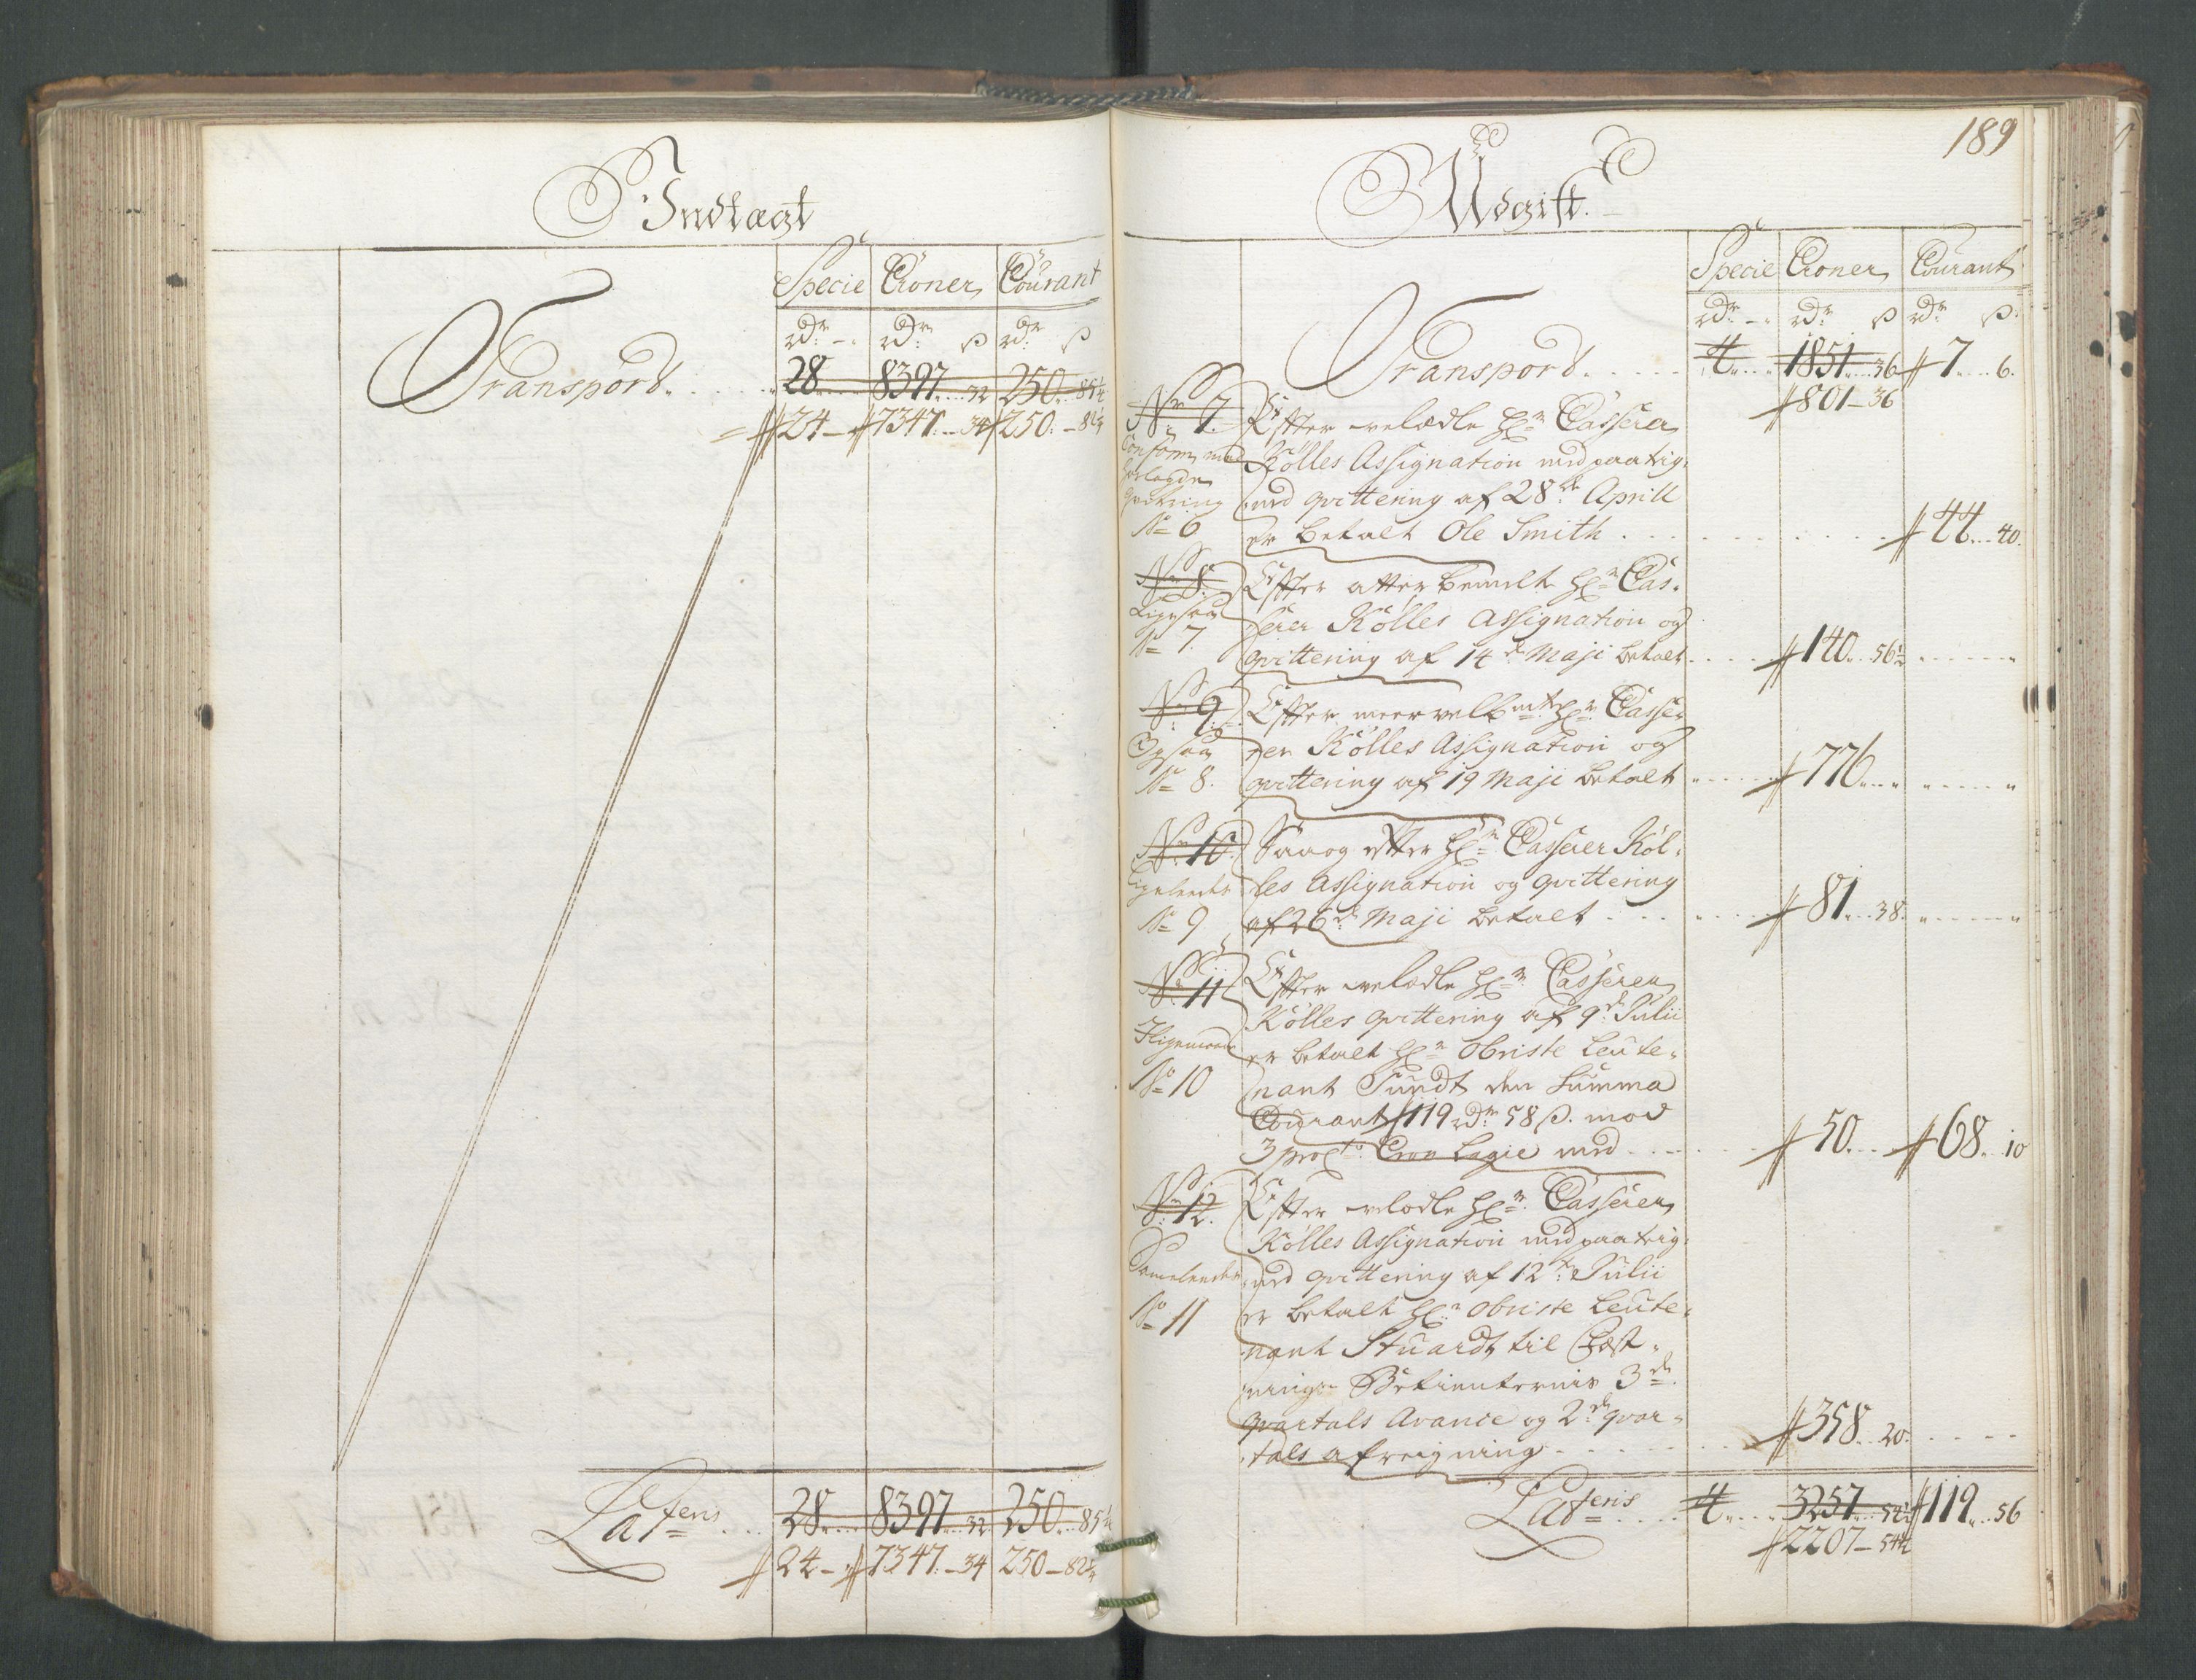 Indtægt
Specie Croner Courant
rdr rdr ß rdr ß
Transport 28 8397 32 250 85¼
24 7347 34 250 82¼
Latens 28 8397 32 250 85¼
24 7347 34 250 82¼
189
Udgift
Specie Croner Courant
rdr rdr ß rdr ß
Transport 4 1851 36 7 6
801 36
No 7 Efter velædle Hr Casserer
Conform med Kølles Assignation med paateig=
qvittering ned qvittering af 28de Aprill
No 6 er betalt Ole Smith 44 40
No 8 Efter atter bemelte Hr Cas=
Ligesaa serer Kølles Assignation og
No 7 qvittering af 14de Maji betalt 140 56½
No 9 Efter meervelbmte Hr Casse=
Ogsaa rer Kølles Assignation og
No 8 qvittering af 19 Maji betalt 776
No 10 Saa og efter Hr Casserer Køl=
Ligeledes les Assignation og qvittering
No 9 af 26de Maji betalt 81 38
No 11 Efter velædle Hr Casserer
Kølles qvittering af 9de Julii
er betalt Hr Obriste Leute=
No 10 nant Sundt den Summa
Courant 119 rdr 58 ß mod
3 proCto Cron Lagie med 50 68 10
No 12 Efter velædle Hr Casserer
Kølles Assignation med paateig=
ned qvittering af 12te Julii
No 11 er betalt Hr Obriste Leute=
nant Stuardt til Fæst=
nings Betienternis 3de
qvartals Avance og 2de qvar=
tals afreigning 358 20
Latens 4 3257 54½ 119 56
2207 54½